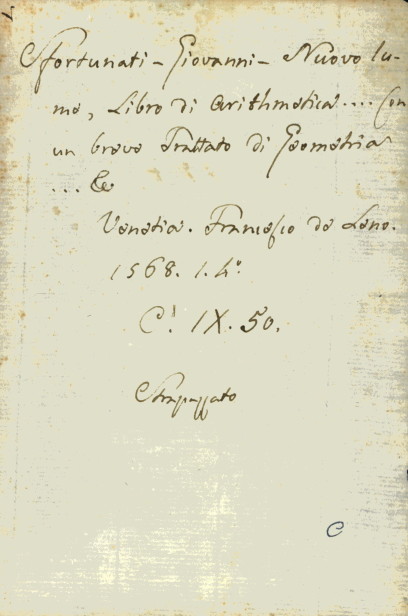 Sfortunati - Giovanni - Nuovo lu-
me, Libro di Arithmetica .... Con
un breve Trattato di Geometria
... &c
Venetia. Francesco de Leno.
1568. 1. 4º.
C! IX. 50.
Strapazzato
C